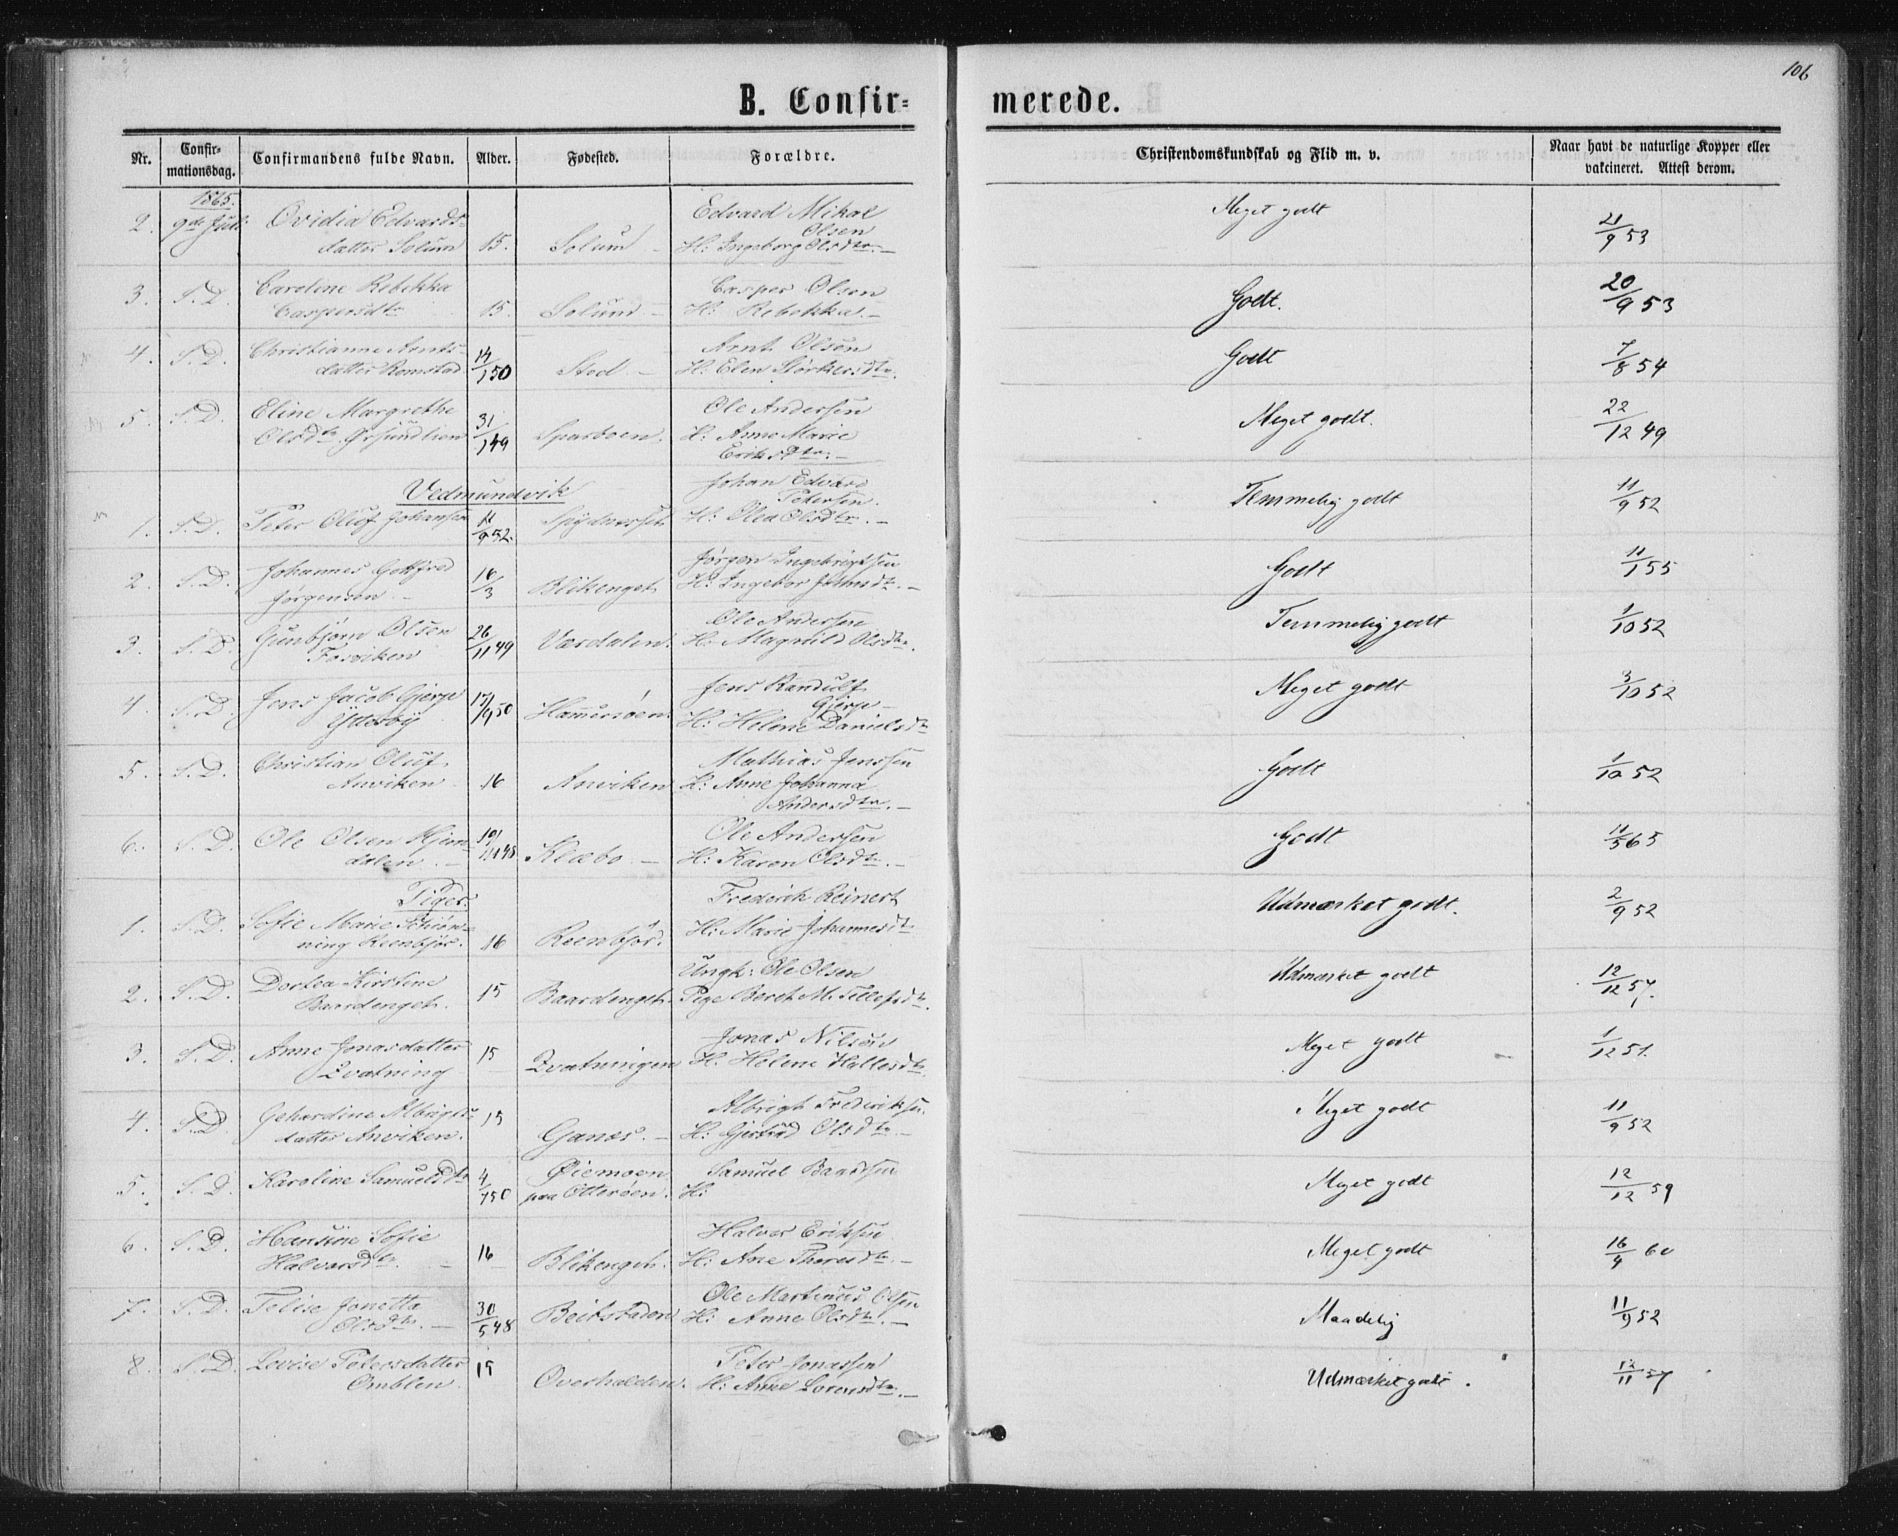 106
B. Confir=
merede.
Nr.
Confir-
mationsdag.
Confirmandens fulde Navn.
Alder.
Fødested.
Forældre.
Christendomskundskab og Flid m. v.
Naar havt de naturlige Kopper eller
vakcineret. Attest derom.
1865.
2. 9de Juli Ovidia Edvards-
datter Solum 15. Solum -
Edvard Mikal
Olsen
H: Ingeborg Olsdtr. -
Meget godt
21/9 53
3. S. D. Caroline Rebekka
Caspersdtr 15. Solum -
Casper Olsen
H: Rebekka. -
Godt.
20/9 53
4. S. D. Christianne Arnts-
datter Romstad 14/1 50 Stod -
Arnt Olsen
H: Elen Størkersdtr.
Godt
7/8 54
5. S. D. Eline Margrethe
Olsdtr. 31/1 49 Sparboen.
Ole Andersen
H: Anne Marie
Eriksdtr. -
Meget godt.
22/12 49
Vedmundvik
1. S. D. Peter Oluf Johansen 11/9 52.
Johan Edvard
Petersen.
H: Olea Olsdtr. -
Temmelig godt
11/9 52
2. S. D. Johannes Gottfred
Jørgensen - 16/3 Blikenget
Jørgen Ingebrigtsen
H: Ingebor -
Godt
11/1 55
3. S. D. Gunbjørn Olsen
Fosviken 26/11 49 Værdalen.
Ole Andersen
H: Magnild Olsdtr.
Temmelig godt
1/10 52
4. S. D. Jens Jacob Gjerpe
Ydesby 15/9 50 Hammerøen
Jens Randulf
Gjerpe -
H: Helene Danielsdtr
Meget godt
3/10 52
5. S. D. Christian Oluf
Anviken 16 Anviken
Mathias Jenssen
H: Anne Johanna
Andersdtr. -
Godt
1/10 52
6. S. D. Ole Olsen Hjem-
dalen. - Klæbo -
Ole Andersen
H: Karen Olsdtr. -
Godt
11/5 65
Piger
1. S. D. Sofie Marie Schiøn-
ning Reenbjør. 16 Reenbjør.
Frederik Reinert
H: Marie Johannesdtr
Udmærket godt.
2/9 52
2. S. D. Dortea Kirstine
Baardenget. 15 Baardenget.
Ungk: Ole Olsen
Pige Beret M. Tellefsdtr.
Udmærket godt
12/12 57.
3. S. D. Anne Jonasdatter
Qvatning 15 Qvatningen
Jonas Nilsen
H. Helene Hallesdtr.
Meget godt
1/12 51.
4. S. D. Gehardine Albrigts-
datter Anviken. 15 Ganes. -
Albrigt Frederiksen
H: Gjertrud Olsdtr. -
Meget godt
11/9 52
5. S. D. Karoline Samuelsdtr 4/1 50 Øiemoen
paa Otterøen.
Samuel Baardsen
H:
Meget godt
12/12 59
6. S. D. Hansine Sofie
Halvorsdtr. - 16 Blikenget.
Halvor Eriksen
H: Ane Thoresdtr. -
Meget godt
16/4 60
7. S. D. Telise Jonetta
Olsdtr. - 30/5 48 Beitstaden
Ole Martinus Olsen
H: Anne Olsdtr. -
Maadelig
11/9 52
8. S. D. Lovise Petersdatter
Omblen 15 Overhalden.
Peter Jonassen
H: Anne Lorensdtr. -
Udmærket godt.
12/11 57